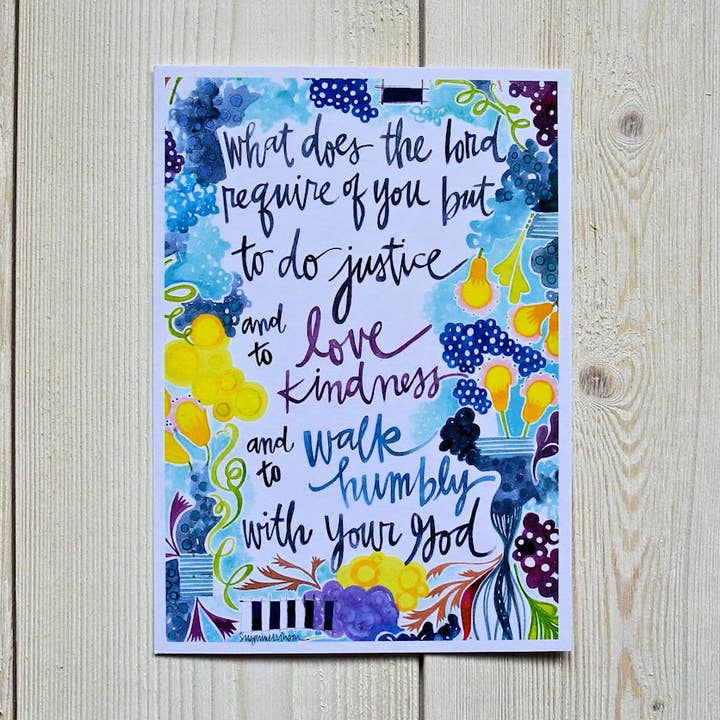 what does the lord
require of you but
to do justice
and
to love
kindness
and
to walk
humbly
with your God